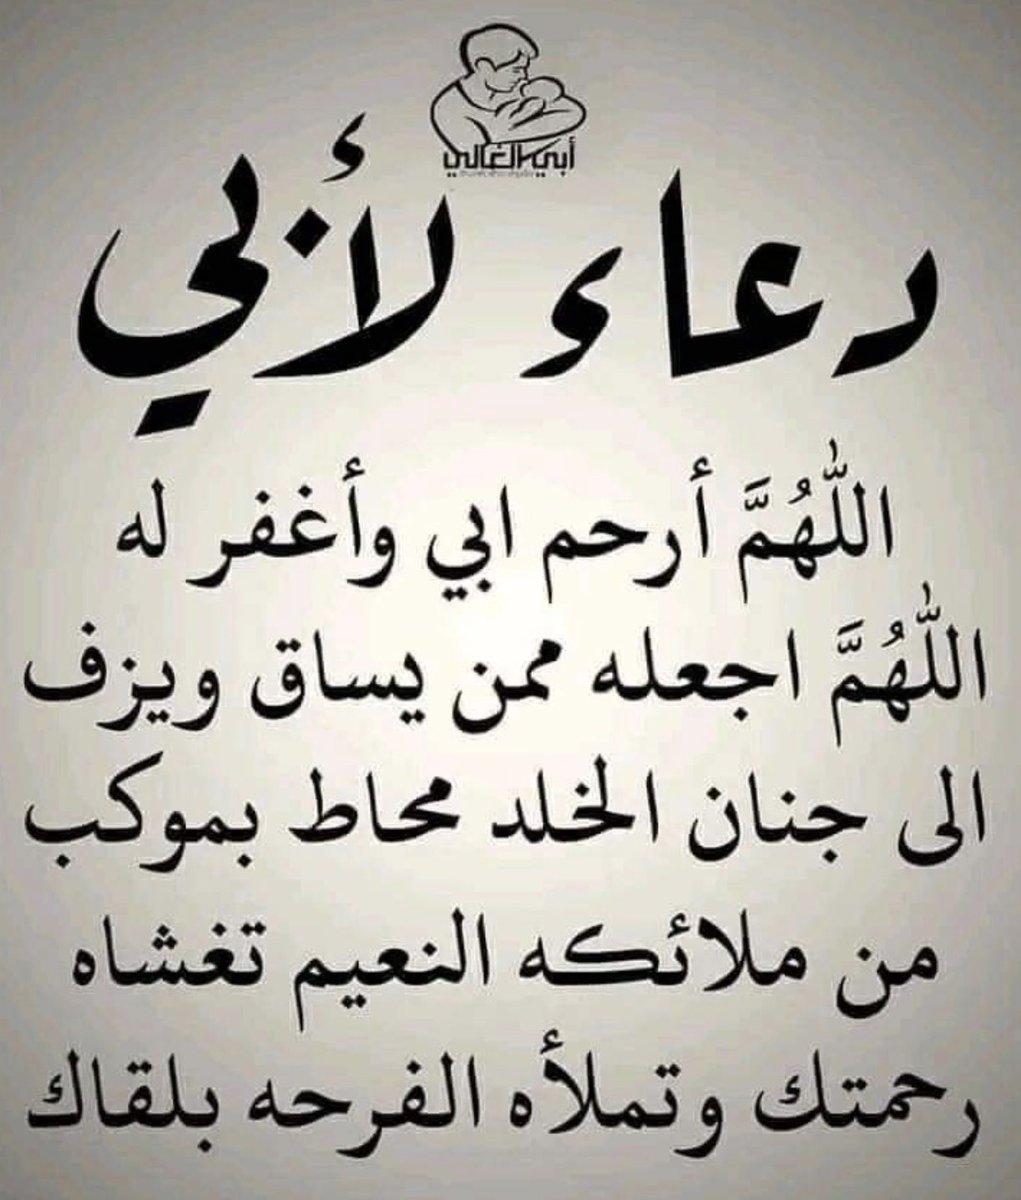 أبي الغالي
دعاء لأبي
اللّٰهُمَّ أرحم ابي وأغفر له
اللّٰهُمَّ اجعله ممن يساق ويزف
الى جنان الخلد محاط بموكب
من ملائكه النعيم تغشاه
رحمتك وتملأه الفرحه بلقاك